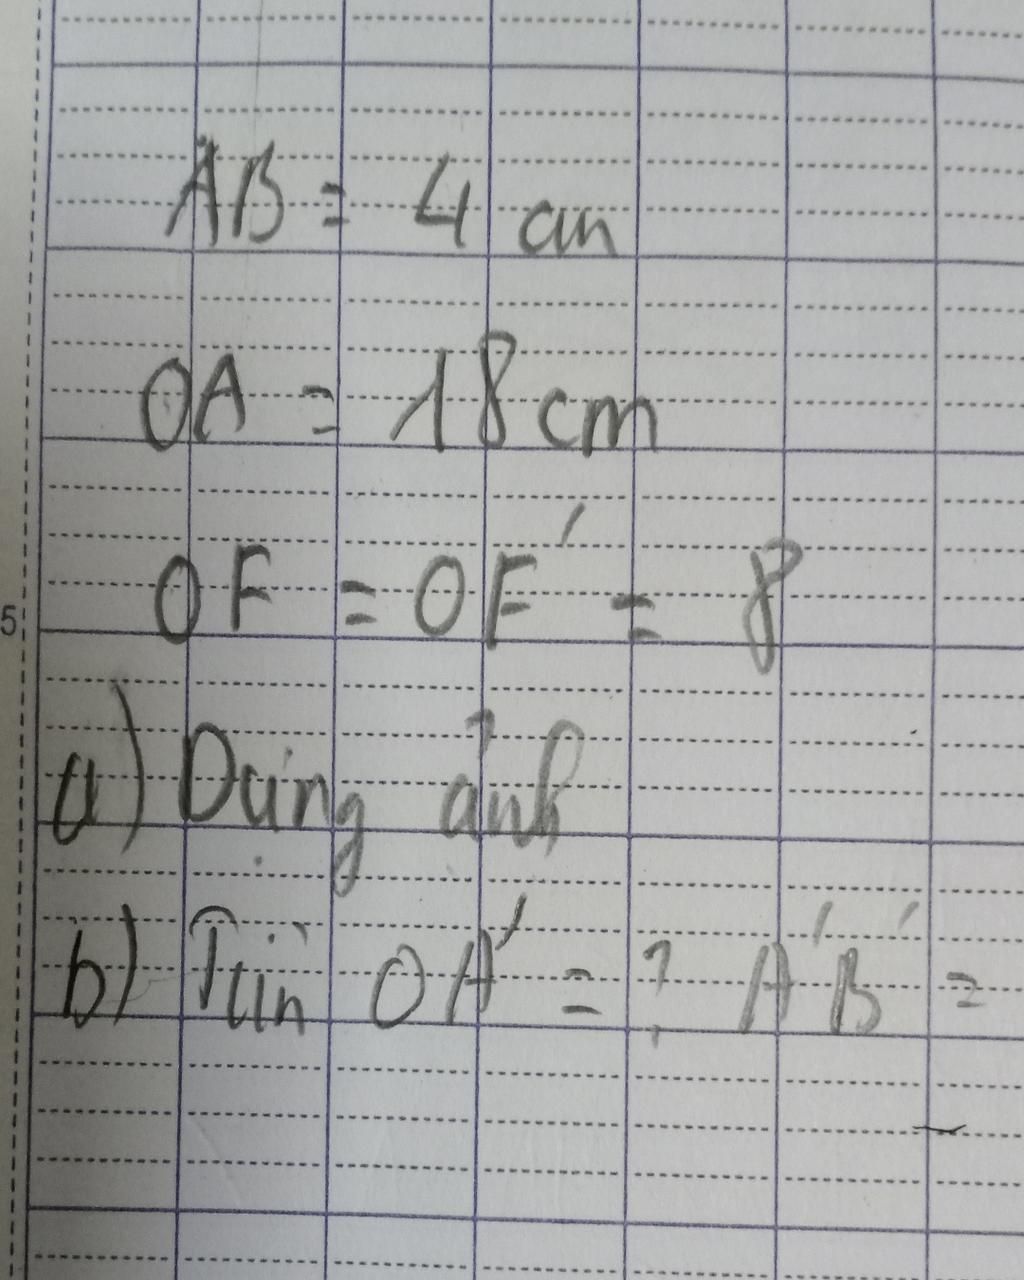 AB = 4 cm
OA = 18 cm
OF = OF' = 8
5
a) Dựng ảnh
b) Tìm OA' = ? A'B' =